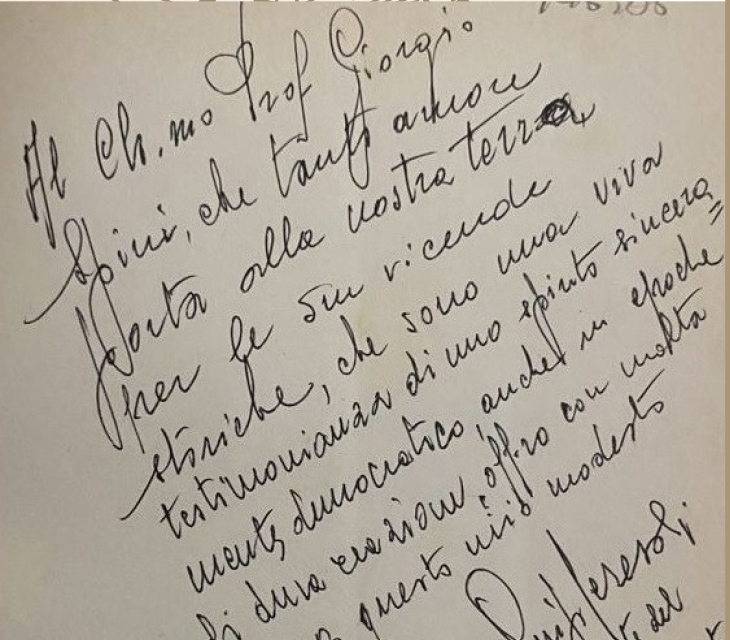 Al Ch.mo Prof Giorgio
Spini, che tanto amore
porta alla nostra terra
per le sue vicende
storiche, che sono una viva
testimonianza di uno spirito sincera=
mente democratico, anche in epoche
di dura reazione, offro con molta
questo mio modesto
del